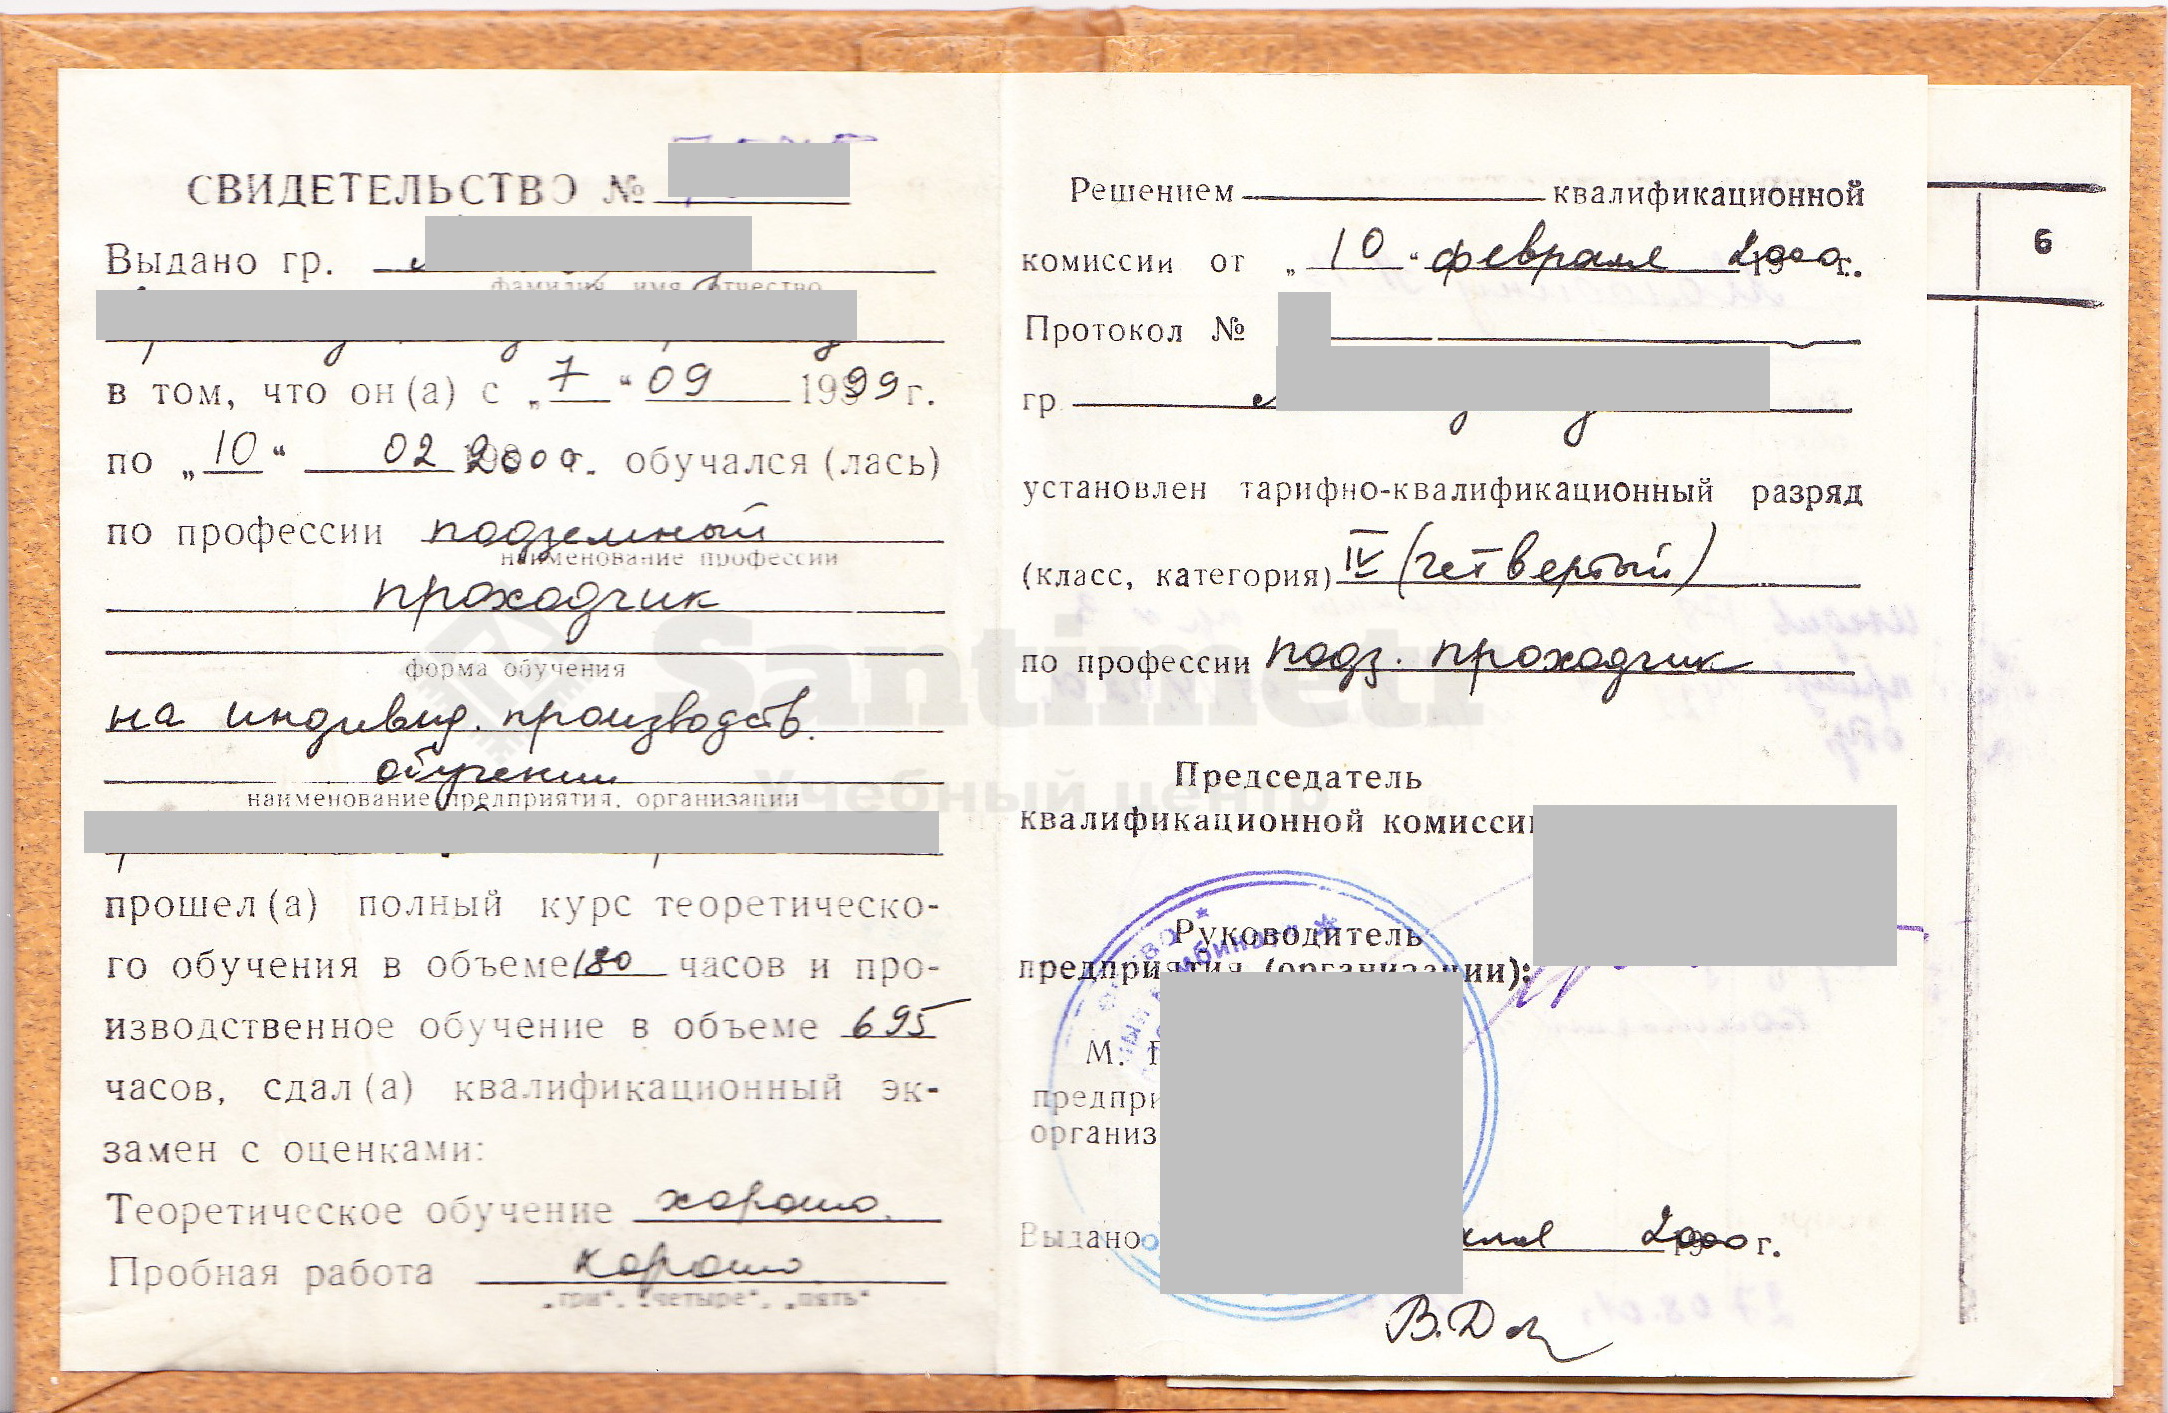 СВИДЕТЕЛЬСТВО №
Выдано гр.
фамилия, имя, отчество
в том, что он(а) с „7“ 09 1999 г.
по „10“ 02 2000г. обучался (лась)
по профессии подземный
наименование профессии
проходчик
форма обучения
на индивид. производств.
обучении
наименование предприятия, организации
прошел(а) полный курс теоретическо-
го обучения в объеме 180 часов и про-
изводственное обучение в объеме 695
часов, сдал(а) квалификационный эк-
замен с оценками:
Теоретическое обучение хорошо.
Пробная работа хорошо
„три“, „четыре“, „пять“
Решением квалификационной
комиссии от „10“ февраля 2000г.
Протокол №
гр
установлен тарифно-квалификационный разряд
(класс, категория) IV (четвертый)
по профессии подз. проходчик
Председатель
квалификационной комиссии
Руководитель
предприятия (организации):
М.
Выдано 2000 г.
6
Santimetr
Учебный центр